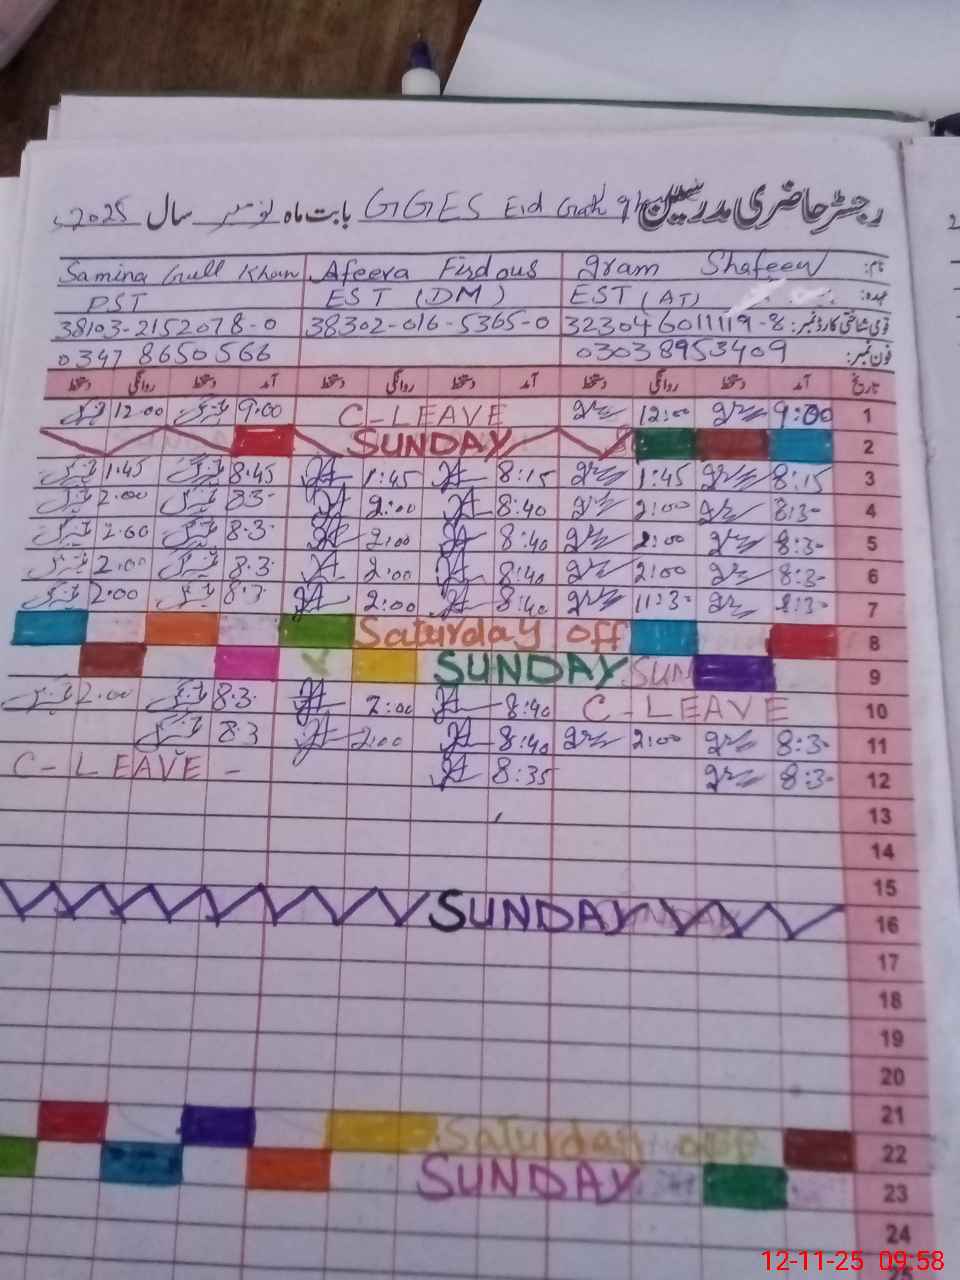 رجسٹر حاضری مدرسین GGES Eid Gah بابت ماہ نومبر سال 2025ء
نام: Samina Gull Khan Afeera Firdous Iram Shafeeq
عہدہ: PST EST (DM) EST (AT)
قومی شناختی کارڈ نمبر: 38103-2152078-0 38302-016-5365-0 323046011119-8
فون نمبر: 0347 8650566 03038953409
دستخط روانگی دستخط آمد دستخط روانگی دستخط آمد دستخط روانگی دستخط آمد تاریخ
12.00 9.00 C-LEAVE 12:00 9:00 1
SUNDAY 2
1.45 8.45 1:45 8:15 1:45 8:15 3
2.00 8.3- 2:00 8:40 2:00 8:3- 4
2.00 8.3- 2:00 8:40 2:00 8:3- 5
2.00 8.3- 2:00 8:40 2:00 8:3- 6
2.00 8.3- 2:00 8:40 11:3- 8:3- 7
Saturday off 8
SUNDAY SUN 9
2.00 8.3- 2:00 8:40 C-LEAVE 10
8.3 2:00 8:40 2:00 8:3- 11
C-LEAVE - 8:35 8:3- 12
13
14
15
SUNDAY 16
17
18
19
20
21
Saturday off 22
SUNDAY 23
24
12-11-25 09:58